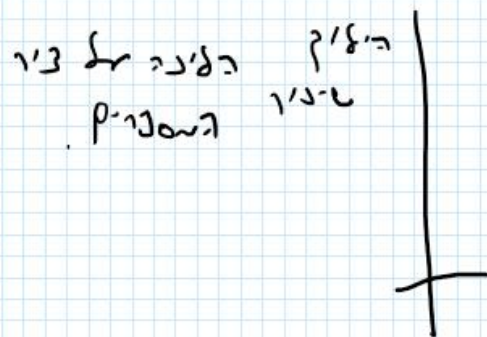 הילוך
שיכור
הליכה על ציר
המספרים.